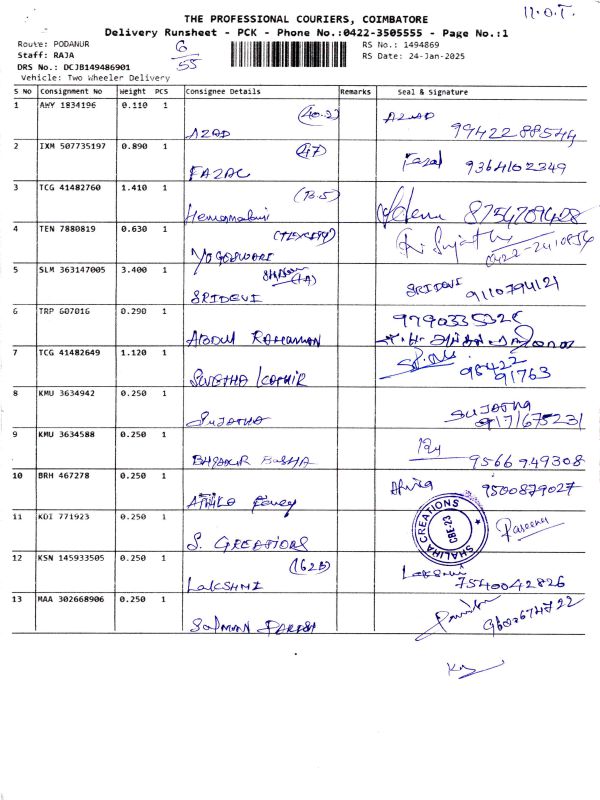 11.O.T.
THE PROFESSIONAL COURIERS, COIMBATORE
Delivery Runsheet - PCK - Phone No.:0422-3505555 - Page No.:1
Route: PODANUR 6/55 RS No.: 1494869
Staff: RAJA RS Date: 24-Jan-2025
DRS No.: DCJB149486901
Vehicle: Two Wheeler Delivery
S No Consignment No Weight PCS Consignee Details Remarks Seal & Signature
1 AWY 1834196 0.110 1 AZAD AZAD 9942288544
2 IXM 507735197 0.890 1 (47) FAZAL Fazal 9364102349
3 TCG 41482760 1.410 1 Hemamalini Hema 8754709408
4 TEN 7880819 0.630 1 YOGESWARI 0422-2410854
5 SLM 363147005 3.400 1 SRIDEVI SRIDEVI 9110794121
6 TRP 607016 0.290 1 Abdul Rahuman
7 TCG 41482649 1.120 1 98422 91763
8 KMU 3634942 0.250 1 Sujatha SUJATHA 9171675231
9 KMU 3634588 0.250 1 BASHA 9566949308
10 BRH 467278 0.250 1 9500879027
11 KDI 771923 0.250 1 S. CREATIONS SHALIHA CREATIONS CBE-23
12 KSN 145933505 0.250 1 (162B) LAKSHMI Lakshmi 7540042826
13 MAA 302668906 0.250 1 SALMAN